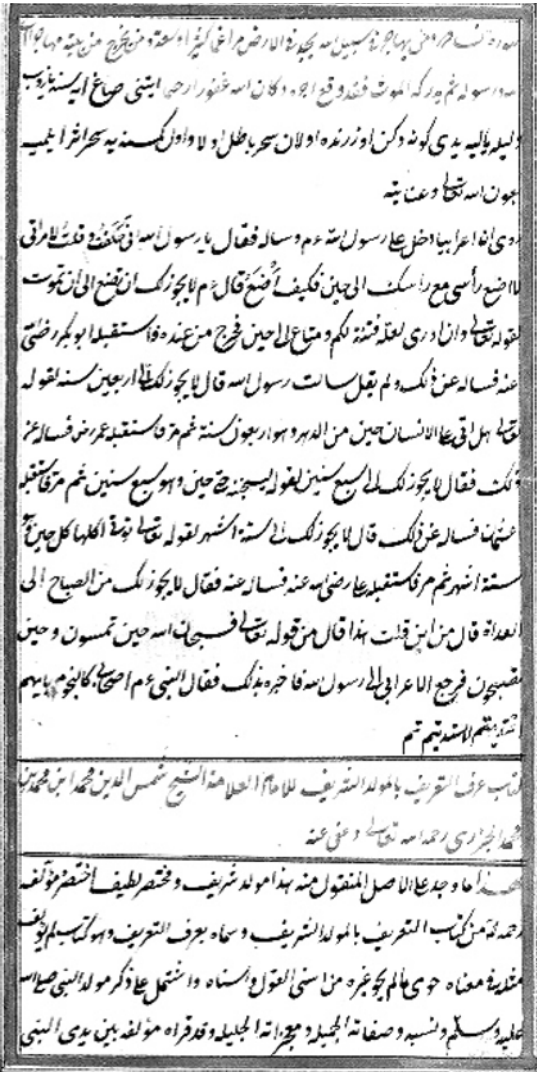 ومن يهاجر في سبيل الله يجد في الارض مراغما كثيرا وسعة ومن يخرج من بيته مهاجرا الى
الله ورسوله ثم يدركه الموت فقد وقع اجره وكان الله غفورا رحيما ايتنى صاغ النه يازوب
اوزرنده اولان سحر باطل اولا واول كمسنه يه سحر اثر ايلميه
بعون الله تعالى وعنايته
روى ان اعرابيا دخل على رسول الله ءم وساله فقال يا رسول الله انى حلفت وقلت لامراتى
لا اضع رأسى مع رأسك الى حين فكيف أصنع قال ءم لا يجوز لك ان تضع الى ان تموت
لقوله تعالى وان ادرى لعله فتنة لكم ومتاع الى حين فخرج من عنده فاستقبله ابو بكر رضى
عنه فساله عن ذلك ولم يقل سالت رسول الله قال لا يجوز لك الى اربعين سنه لقوله
تعالى هل اتى على الانسان حين من الدهر وهو اربعون سنة ثم مر فاستقبله عمر رض فساله عن
ذلك فقال لا يجوز لك الى سبع سنين لقوله ليسجننه حتى حين وهو سبع سنين ثم مر فاستقبله
عثمان فساله عن ذلك قال لا يجوز لك الى ستة اشهر لقوله تعالى تؤتى اكلها كل حين وهو
ستة اشهر ثم مر فاستقبله على رضى الله عنه فساله عنه فقال لا يجوز لك من الصباح الى
الغداة قال من اين قلت هذا قال من قوله تعالى فسبحان الله حين تمسون وحين
تصبحون فرجع الاعرابى الى رسول الله فاخبره بذلك فقال النبى ءم اصحابى كالنجوم بايهم
اقتديتم اهتديتم تم
كتاب عرف التعريف بالمولد الشريف للامام العلامة الشيخ شمس الدين محمد ابن محمد بن
محمد الجزرى رحمه الله تعالى وعفى عنه
هذا ما وجد على الاصل المنقول منه هذا مولد شريف ومختصر لطيف اختصره مؤلفه
رحمه الله من كتاب التعريف بالمولد الشريف وسماه بعرف التعريف وهو كتاب لم يؤلف
مثله فى معناه حوى ما لم يحو غيره من اسنى القول واسناه واشتمل على ذكر مولد النبى صلى الله
عليه وسلم ونسبه وصفاته الجميله ومعجزاته الجليله وقد قراه مؤلفه بين يدى النبى